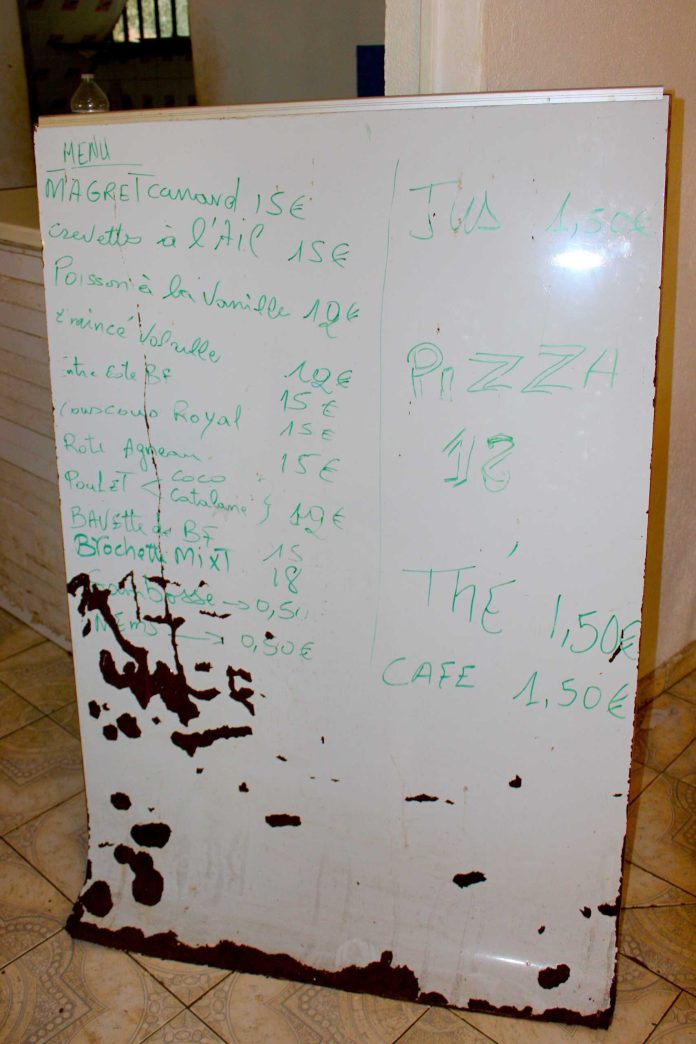 MENU
MAGRET canard 15€
crevettes à l'Ail 15€
Poisson à la Vanille 12€
Emincé Volaille 12€
Entre Cote BF 15€
Couscous Royal 15€
Roti Agneau 15€
POULET < COCO
Catalane } 12€
BAVETTE de BF 15
Brochette MIXT 18
SamBosse → 0,50
NEMS → 0,50€
JUS 1,50€
PIZZA
12
THÉ 1,50€
CAFE 1,50€